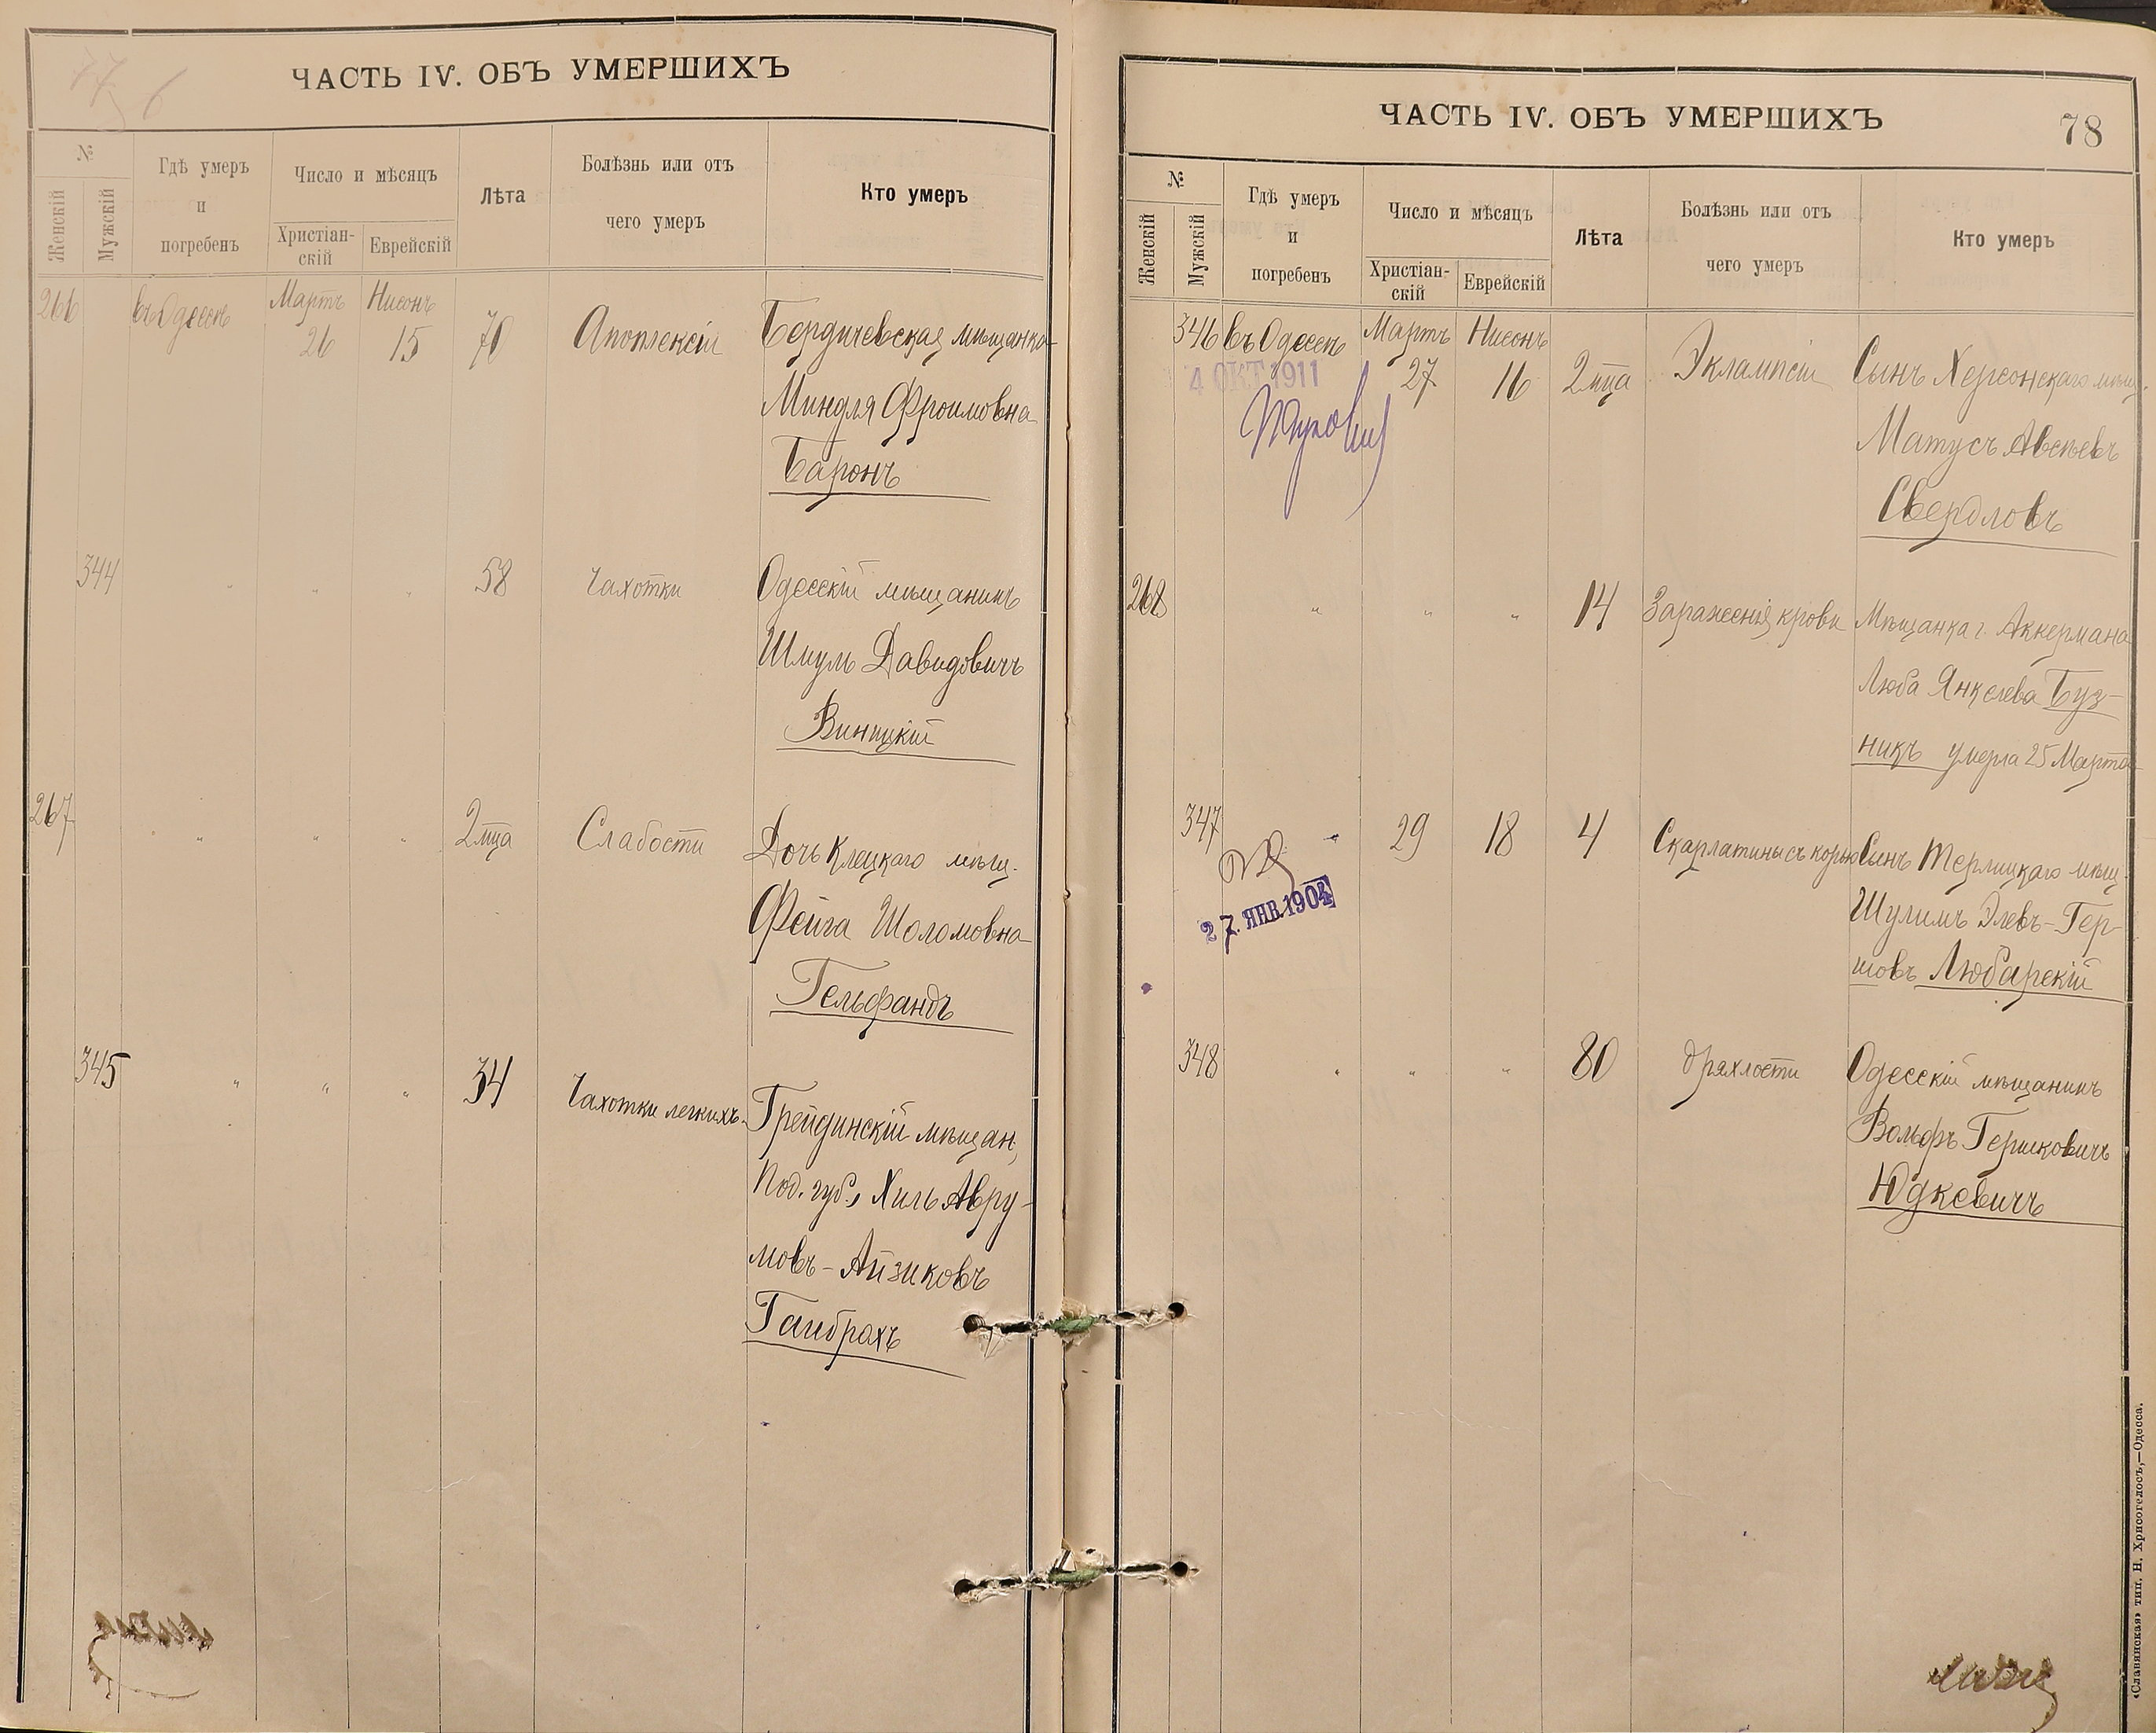 ЧАСТЬ IV. ОБЪ УМЕРШИХЪ
№
Женскій
Мужскій
Гдѣ умеръ
и
погребенъ
Число и мѣсяцъ
Христіан-
скій
Еврейскій
Лѣта
Болѣзнь или отъ
чего умеръ
Кто умеръ
266 въ Одессѣ Мартъ Нисонъ
26 15 70 Апоплексіи Бердичевская мѣщанка
Миндля Фроимовна
Баронъ
344 " " " 58 Чахотки Одесскій мѣщанинъ
Шмуль Давидовичъ
Винницкій
267 " " " 2 мца Слабости Дочь Клецкаго мѣщ.
Фейга Шоломовна
Гельфандъ
345 " " " 34 Чахотки легкихъ Грейдинскій мѣщан.
Под. губ., Хиль Авру-
мовъ-Айзиковъ
Гаибрахъ
ЧАСТЬ IV. ОБЪ УМЕРШИХЪ
78
№
Женскій
Мужскій
Гдѣ умеръ
и
погребенъ
Число и мѣсяцъ
Христіан-
скій
Еврейскій
Лѣта
Болѣзнь или отъ
чего умеръ
Кто умеръ
346 въ Одессѣ Мартъ Нисонъ
27 16 2 мца Эклампсіи Сынъ Херсонскаго мѣщ.
4 ОКТ 1911
Матусъ Авсѣевъ
Свердловъ
268 " " " 14 Зараженія крови Мѣщанка г. Аккермана
Люба Янкелева Буз-
никъ умерла 25 Марта
347 " 29 18 4 Скарлатины съ корью Сынъ Терлицкаго мѣщ.
27. ЯНВ. 1904
Шулимъ Элевъ-Гер-
шовъ Любарскій
348 " " " 80 Дряхлости Одесскій мѣщанинъ
Вольфъ Гершковичъ
Юдкевичъ
«Славянская» тип. Н. Хрисогелосъ,—Одесса.